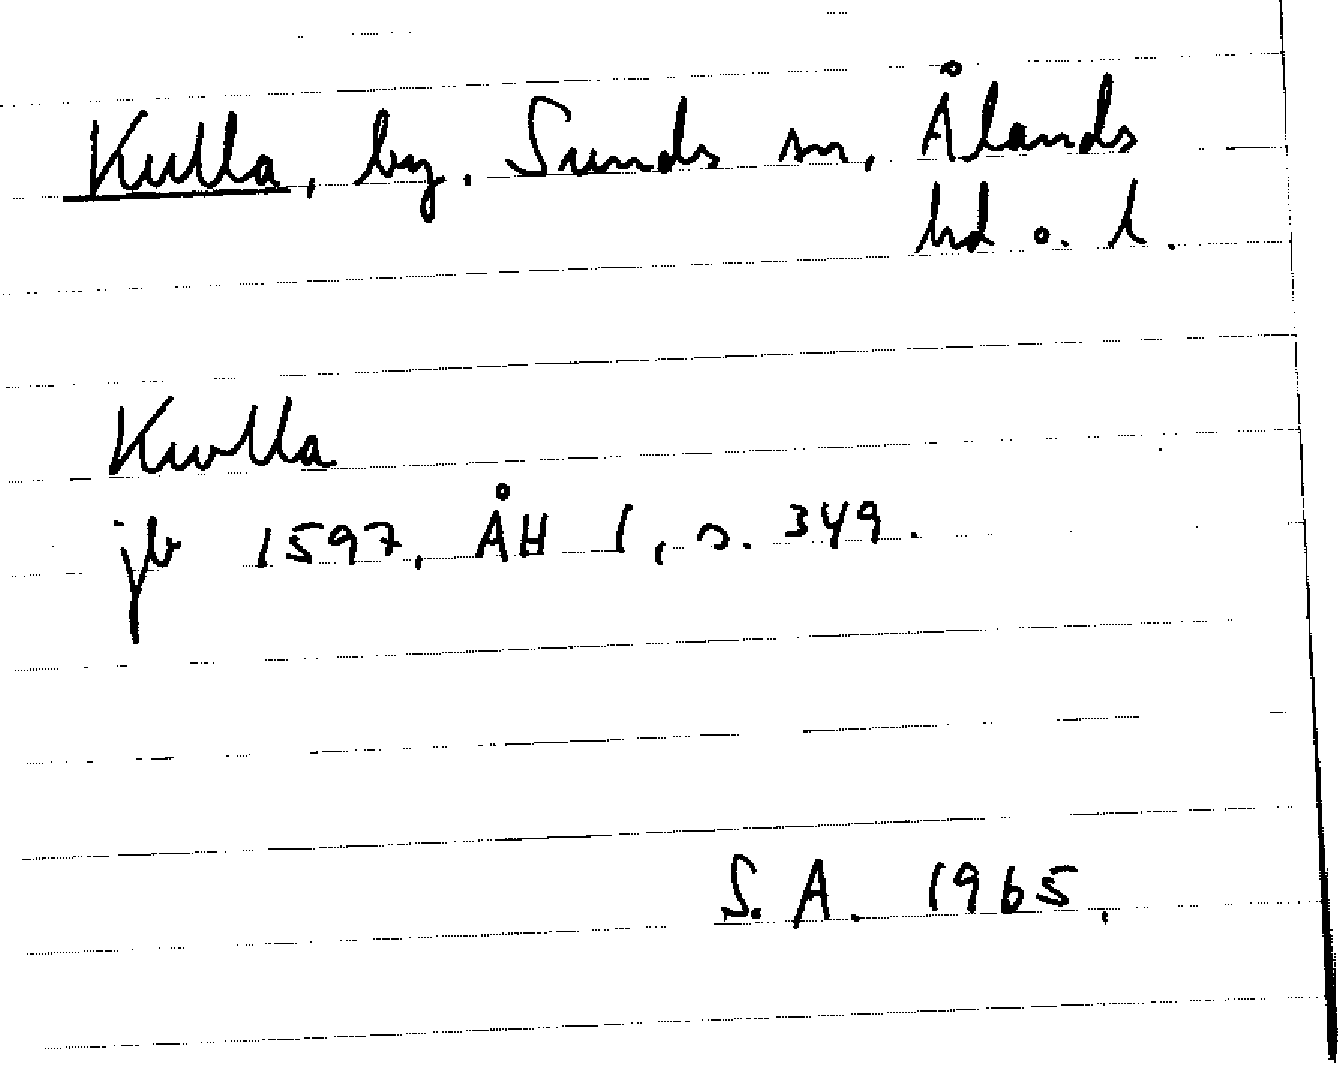 Kulla, by. Sunds sn, Ålands
hd o. l.
Kwlla
jb 1597, ÅH I, s. 349.
S. A. 1965.